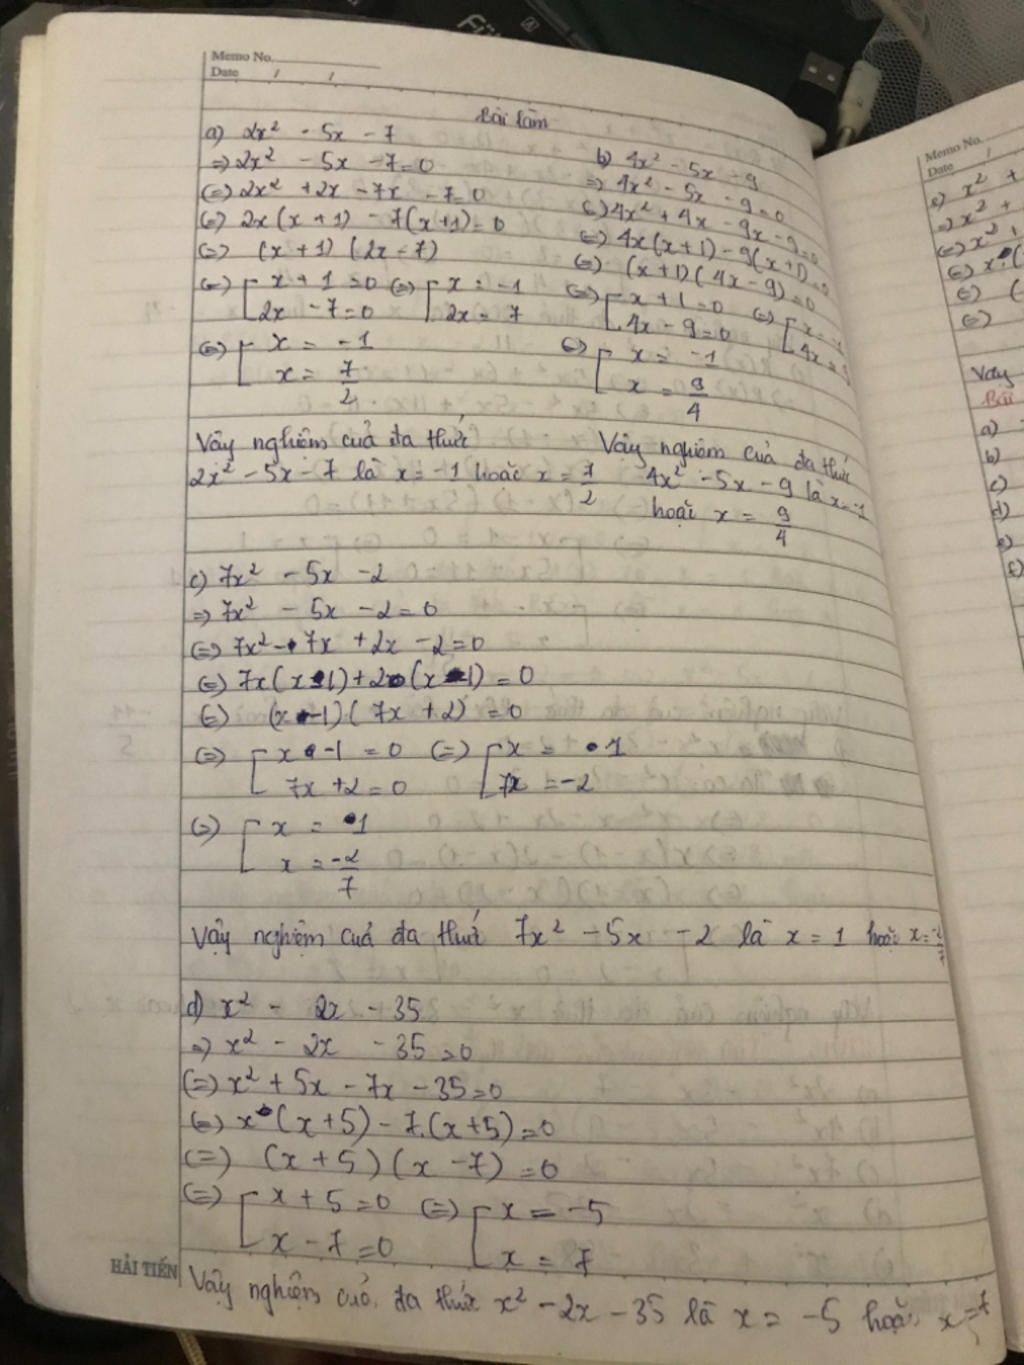 Memo No.
Date / /
Bài làm
a) 2x² - 5x - 7
=> 2x² - 5x - 7 = 0
(=) 2x² + 2x - 7x - 7 = 0
(=) 2x(x + 1) - 7(x + 1) = 0
(=) (x + 1) (2x - 7)
(=) [ x + 1 = 0 (=) [ x = -1
2x - 7 = 0 2x = 7
(=) [ x = -1
x = 7/2
Vây nghiêm cuả đa thức
2x² - 5x - 7 là x = -1 hoặc x = 7/2
b) 4x² - 5x - 9
=> 4x² - 5x - 9 = 0
(=) 4x² + 4x - 9x - 9 = 0
(=) 4x(x + 1) - 9(x + 1) = 0
(=) (x + 1) (4x - 9) = 0
(=) [ x + 1 = 0 (=) [ x = -1
4x - 9 = 0 4x = 9
(=) [ x = -1
x = 9/4
Vây nghiêm cuả đa thức
4x² - 5x - 9 là x = -1
hoặc x = 9/4
c) 7x² - 5x - 2
=> 7x² - 5x - 2 = 0
(=) 7x² - 7x + 2x - 2 = 0
(=) 7x(x - 1) + 2(x - 1) = 0
(=) (x - 1) (7x + 2) = 0
(=) [ x - 1 = 0 (=) [ x = 1
7x + 2 = 0 7x = -2
(=) [ x = 1
x = -2/7
Vậy nghiệm cuả đa thức 7x² - 5x - 2 là x = 1 hoặc x = -2/7
d) x² - 2x - 35
=> x² - 2x - 35 = 0
(=) x² + 5x - 7x - 35 = 0
(=) x (x + 5) - 7.(x + 5) = 0
(=) (x + 5) (x - 7) = 0
(=) [ x + 5 = 0 (=) [ x = -5
x - 7 = 0 x = 7
HẢI TIẾN
Vây nghiệm cuả đa thức x² - 2x - 35 là x = -5 hoặc x = 7
Memo No.
Date /
e) x² +
=> x² +
(=) x² +
(=) x (
(=) (
(=)
Vay
Bài
a)
b)
c)
d)
e)
f)